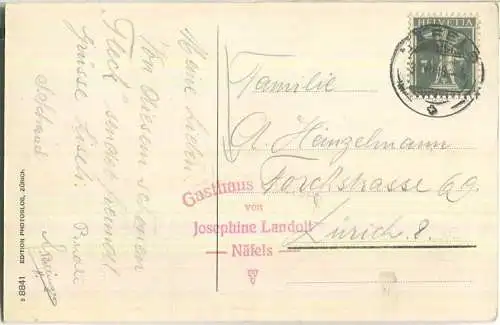 HELVETIA
NÄFELS
Familie
A. Heinzelmann
Forchstrasse 69.
Zürich 8.
Gasthaus
von
Josephine Landolt
— Näfels —
Meine Lieben
Von diesem schönen
"Fleck" sendet freundl.
Grüsse Lisel:
EDITION PHOTOGLOB, ZÜRICH.
8841